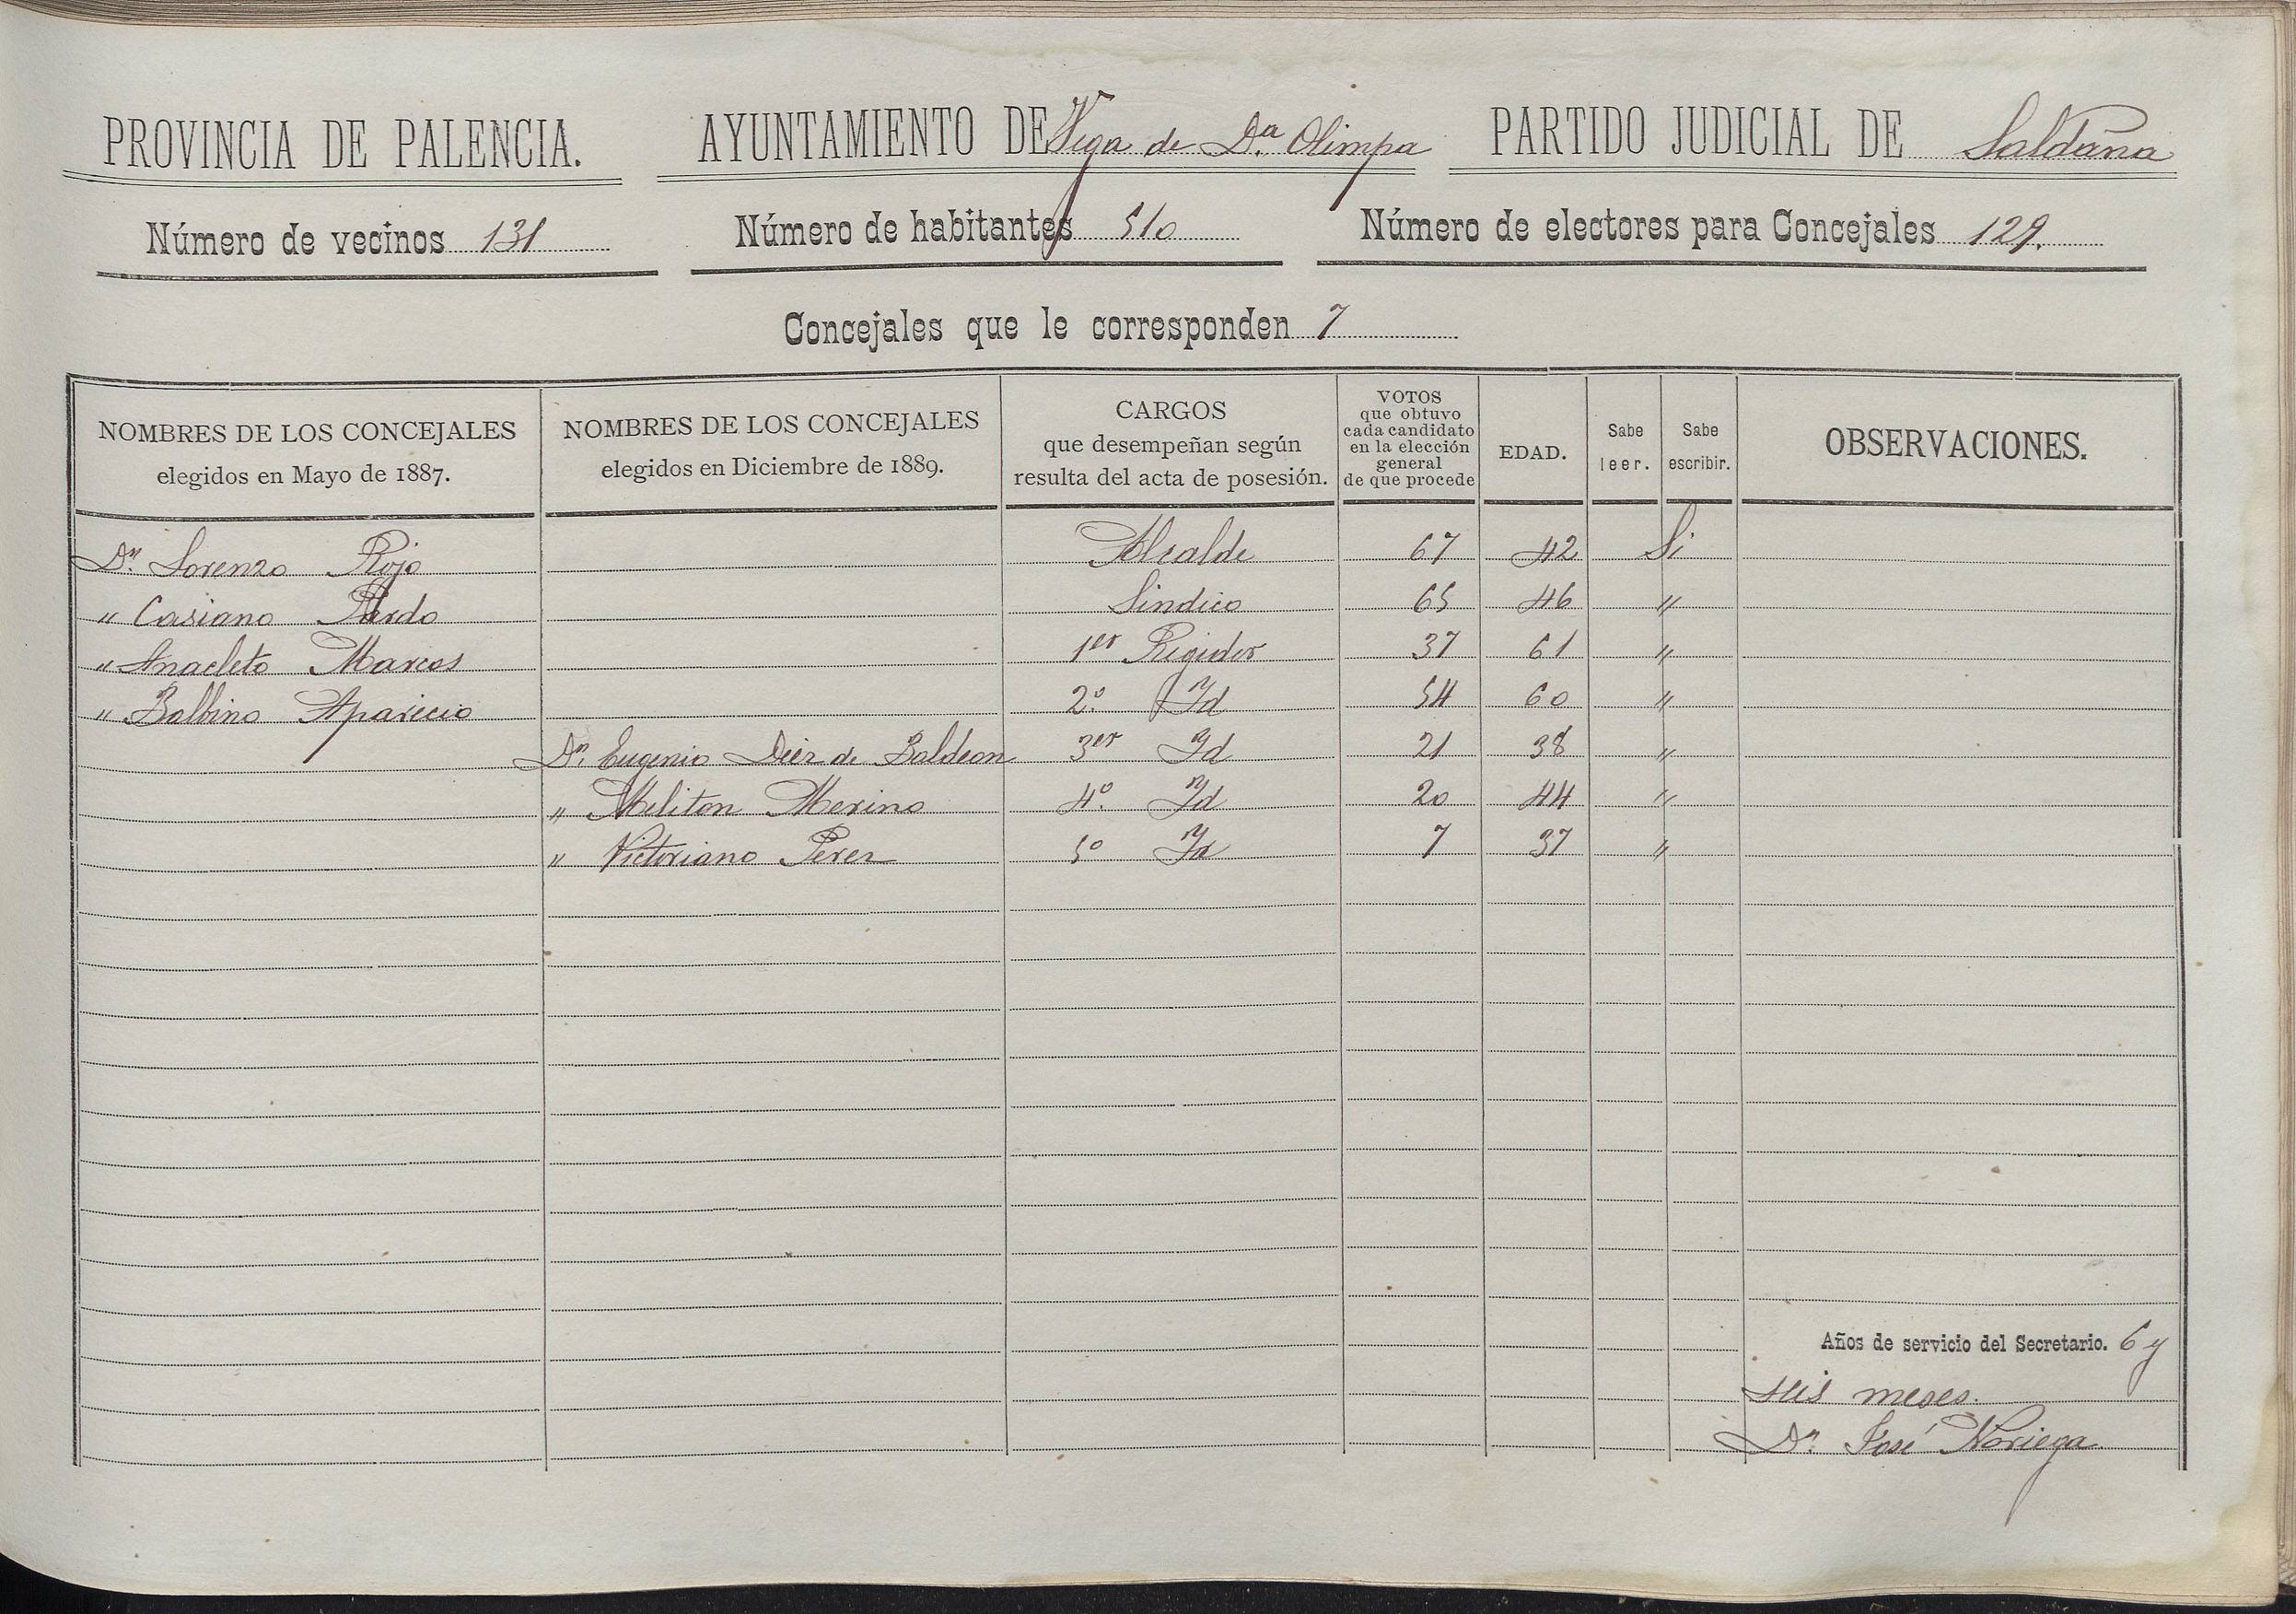 PROVINCIA DE PALENCIA. AYUNTAMIENTO DE Vega de D.ª Olimpa PARTIDO JUDICIAL DE Saldaña
Número de vecinos 131 Número de habitantes 510 Número de electores para Concejales 129.
Concejales que le corresponden 7
NOMBRES DE LOS CONCEJALES elegidos en Mayo de 1887. NOMBRES DE LOS CONCEJALES elegidos en Diciembre de 1889. CARGOS que desempeñan según resulta del acta de posesión. VOTOS que obtuvo cada candidato en la elección general de que procede EDAD. Sabe leer. Sabe escribir. OBSERVACIONES.
Dn. Lorenzo Rojo Alcalde 67 42 Si
" Casiano Pardo Sindico 65 46 "
" Anacleto Marcos 1er Rigidor 37 61 "
" Balbino Aparicio 2.º Id 54 60 "
Dn. Eugenio Diez de Baldeon 3er Id 21 38 "
" Meliton Merino 4.º Id 20 44 "
" Victoriano Perez 5º Id 7 37 "
Años de servicio del Secretario. 6 y
seis meses.
Dn. José Noriega